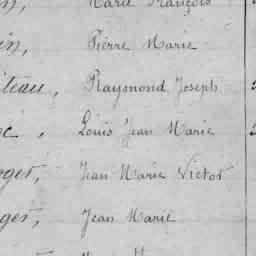 Marie François
in, Pierre Marie
iteau, Raymond Joseph
c, Louis Jean Marie
ger, Jean Marie Victor
ger, Jean Marie